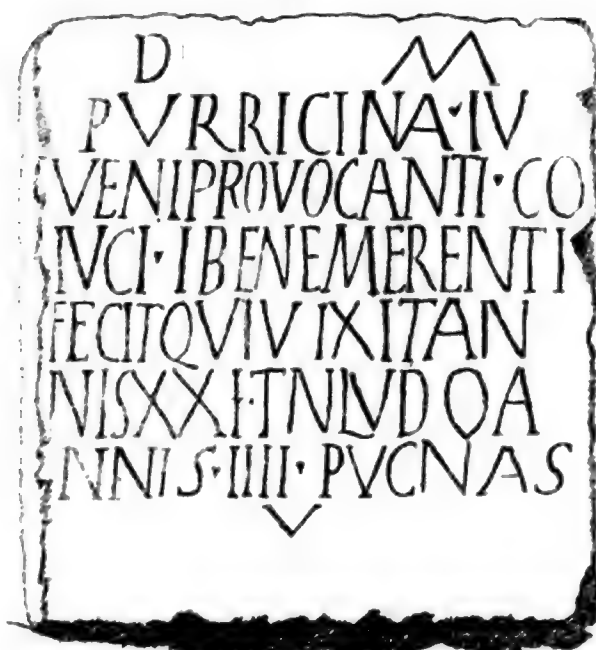 D M
PVRRICINA·IV
VENIPROVOCANTI·CO
IVCI·IBENEMERENTI
FECITQVIVIXITAN
NISXXI·TNLVDOA
NNIS·IIII·PVCNAS
V